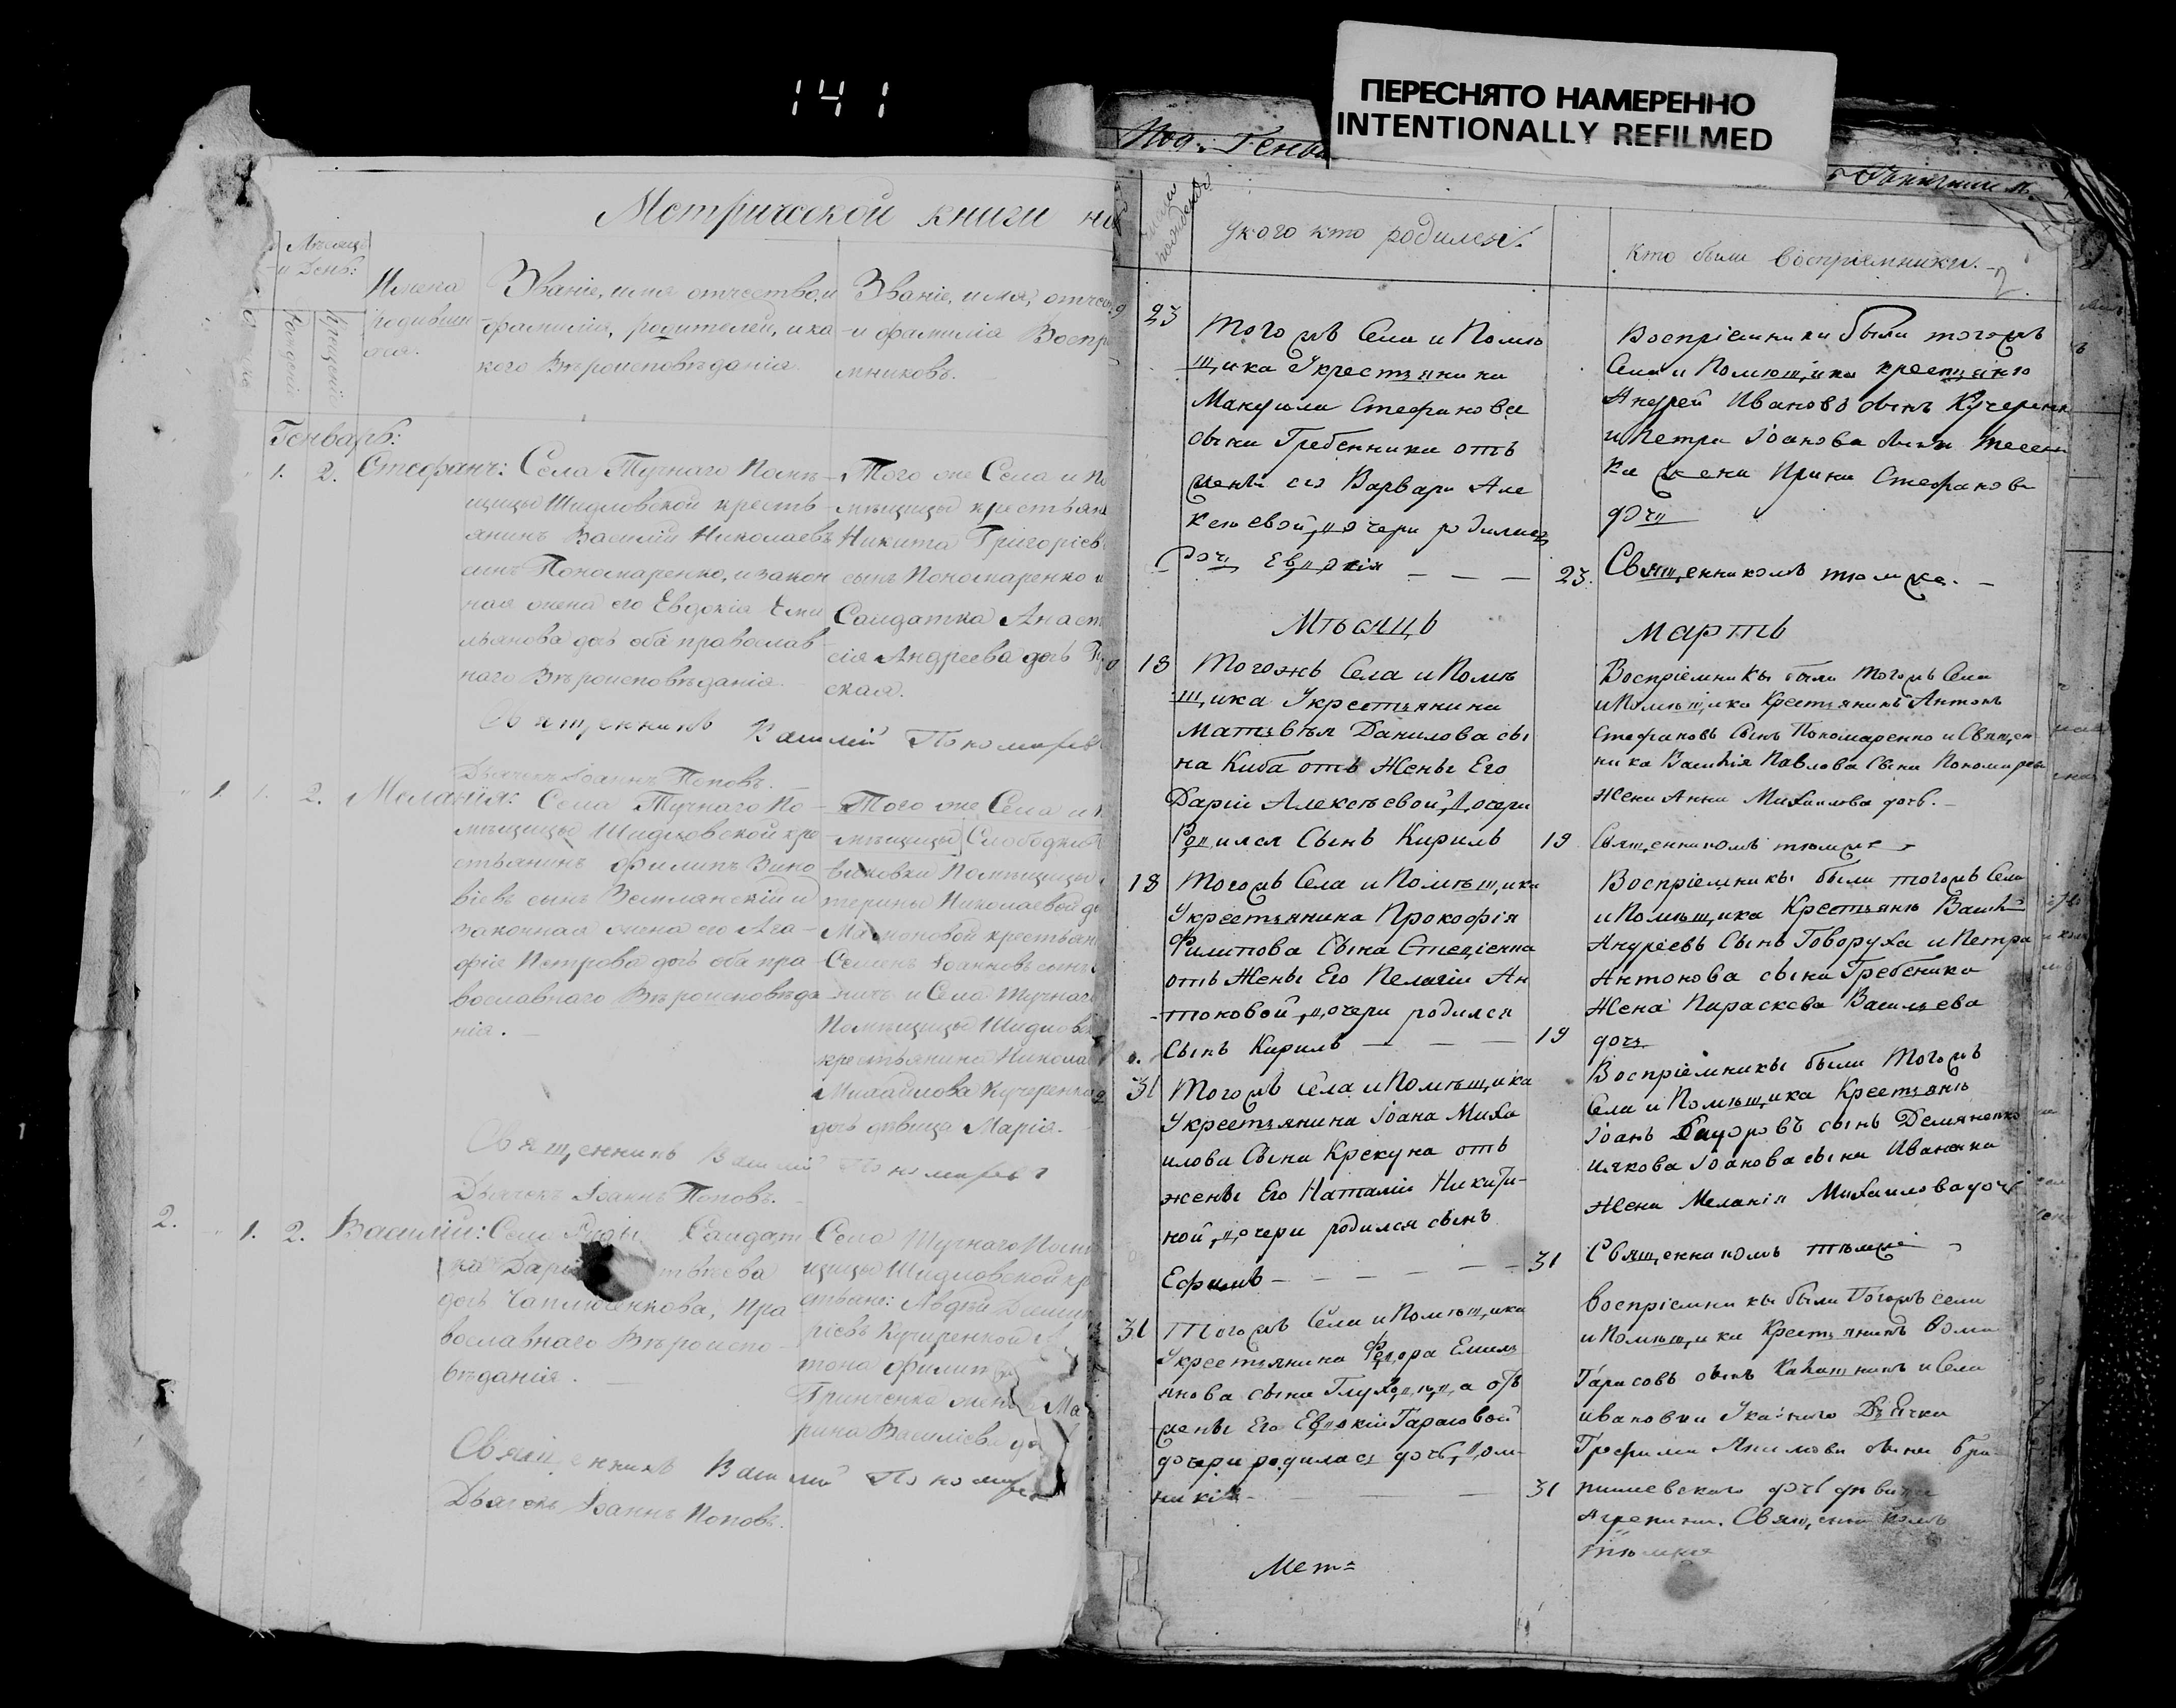 141
ПЕРЕСНЯТО НАМЕРЕННО
INTENTIONALLY REFILMED
Метрической книги
Мѣсяцъ
и День:
Имена
родивших
ся.
Званіе, имя отчество, и
фамилія, родителей, и ка
кого Вѣроисповѣданія.
Званіе, имя, отчес
и фамилія Воспр
мниковъ.
Генварь:
1. 2. Стефанъ: Села Тучнаго Помѣ-
щицы Шидловской кресть
янинъ Василій Николаевъ
сынъ Пономаренко, и закон
ная жена его Евдокія Еми
льянова дочь оба православ
наго Вѣроисповѣданія.
Того же Села и По
мѣщицы крестьян
Никита Григоріев
сынъ Пономаренко и
Салдатка Анаст
сія Андреева дочь
ская.
Священникъ Василій Пономарев
Дьячекъ Іоаннъ Поповъ.
1. 2. Меланія: Села Тучнаго По-
мѣщицы Шидловской кре
стьянинъ Филипъ Зино
віевъ сынъ Землянскій и
законная жена его Ага-
фія Петрова дочь оба пра
вославнаго Вѣроисповѣда
нія.
Того же Села и
мѣщицы Слободки
Помѣщицы
терины Николаевой до
Мамоновой крестьян
Семенъ Іоанновъ сынъ
и Села Тучнаго
Помѣщицы Шидловск
крестьянина Никола
Михайлова Кучеренка
дочь дѣвица Марія.
Священникъ Василій Пономарев
Дьячекъ Іоаннъ Поповъ.
2. 1. 2. Василій: Села Салдат
ка Дарі твѣева
дочь Чаплюченкова, Пра
вославнаго Вѣроиспо
вѣданія.
Села Тучнаго Помѣ
щицы Шидловской кр
стьяне: Авдѣй Димит
ріевъ Кучеренко и
тона Филип
Гринченка жена Ма
рина Василіева до
Священникъ Василій Пономарев
Дьячекъ Іоаннъ Поповъ.
Год. Генва
у кого кто родился.
кто были воспріемники.
2
23 Того жъ Села и Помѣ
щика Укрестянина
Мануила Стефанова
сына Гребенника отъ
жены его Варвари Але
ксѣевой, дочери родилась
дочъ Евдокія
Воспріемники были тогожъ
Села и Помѣщика крестянѣ
Андрей Ивановъ сынъ Кучеренк
и Петра Іоанова сына
ка жена Ирина Стефанова
дочъ
23. Священникомъ тѣмже.
Мѣсяцъ
Мартъ
18 Тогожъ Села и Помѣ
щика Укрестянина
Матвѣя Данилова сы
на Киба отъ Жены Его
Даріи Алексѣевой, Дочери
Родился Сынъ Кирилъ
Воспріемникы были Тогожъ Села
и Помѣщика Крестянинъ Антонъ
Стефановъ Сынъ Пономаренко и Священ
ника Василія Павлова Сына Пономарев
Жена Анна Михаилова дочь.
19 Священникомъ тѣмже
18 Тогожъ Села и Помѣщика
Укрестянина Прокофія
Филипова Сына Стеценка
отъ Жены Его Пелагіи Ан
тоновой, дочери родился
Сынъ Кирилъ
Воспріемникы были тогожъ Села
и Помѣщика Крестянѣ Василій
Андреевъ Сынъ Говоруха и Петра
Антонова сына Гребеника
Жена Параскева Василева
19 дочъ
31 Тогожъ Села и Помѣщика
Укрестянина Іоана Миха
илова Сына Крекуна отъ
жены Его Наталіи Никити-
ной, дочери родился сынъ
Ефимъ
Воспріемникы были Тогожъ
Села и Помѣщика Крестянѣ
Іоанъ сынъ Демяненко
и Якова Іоанова сына Иваненка
Жена Меланія Михаилова дочъ
31 Священникомъ тѣмже
31 Тогожъ Села и Помѣщика
Укрестянина Федора Емел
янова сына отъ
жены Его Евдокіи Тарасовой
дочери родилась дочь, Дом-
никія
Воспріемникы были Тогожъ села
и Помѣщика Крестянинъ Фома
Тарасовъ сынъ и Села
Ивановки Указного Дьячка
Трофима Якимова сына
31 дочь дѣвица
Агрепина. Священникомъ
тѣмже
Мет=